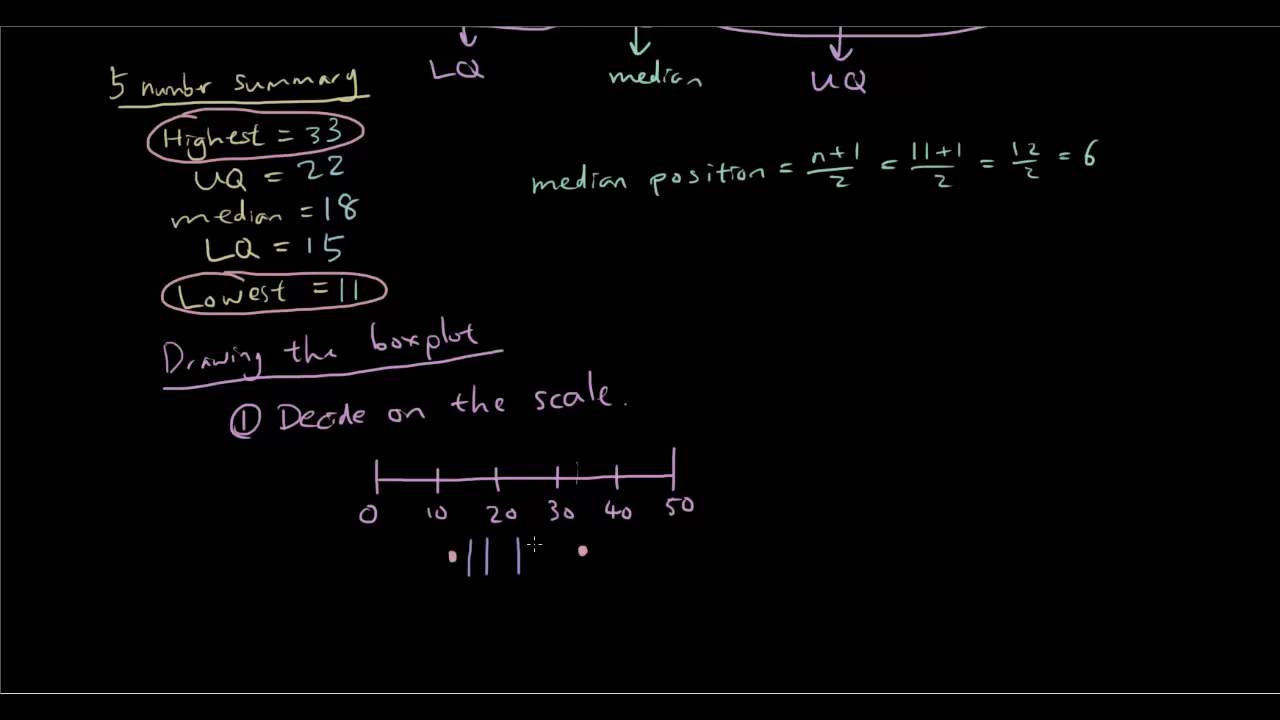 LQ median UQ
5 number summary
Highest = 33
median position = n+1/2 = 11+1/2 = 12/2 = 6
UQ = 22
median = 18
LQ = 15
Lowest = 11
Drawing the boxplot
① Decide on the scale.
0 10 20 30 40 50